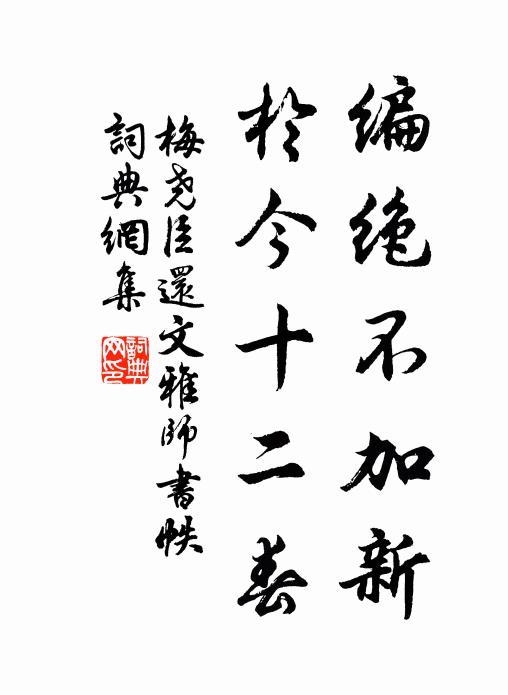 编绝不加新
於今十二春
梅尧臣還文雅師書帙
詞典網集
詞典
网印